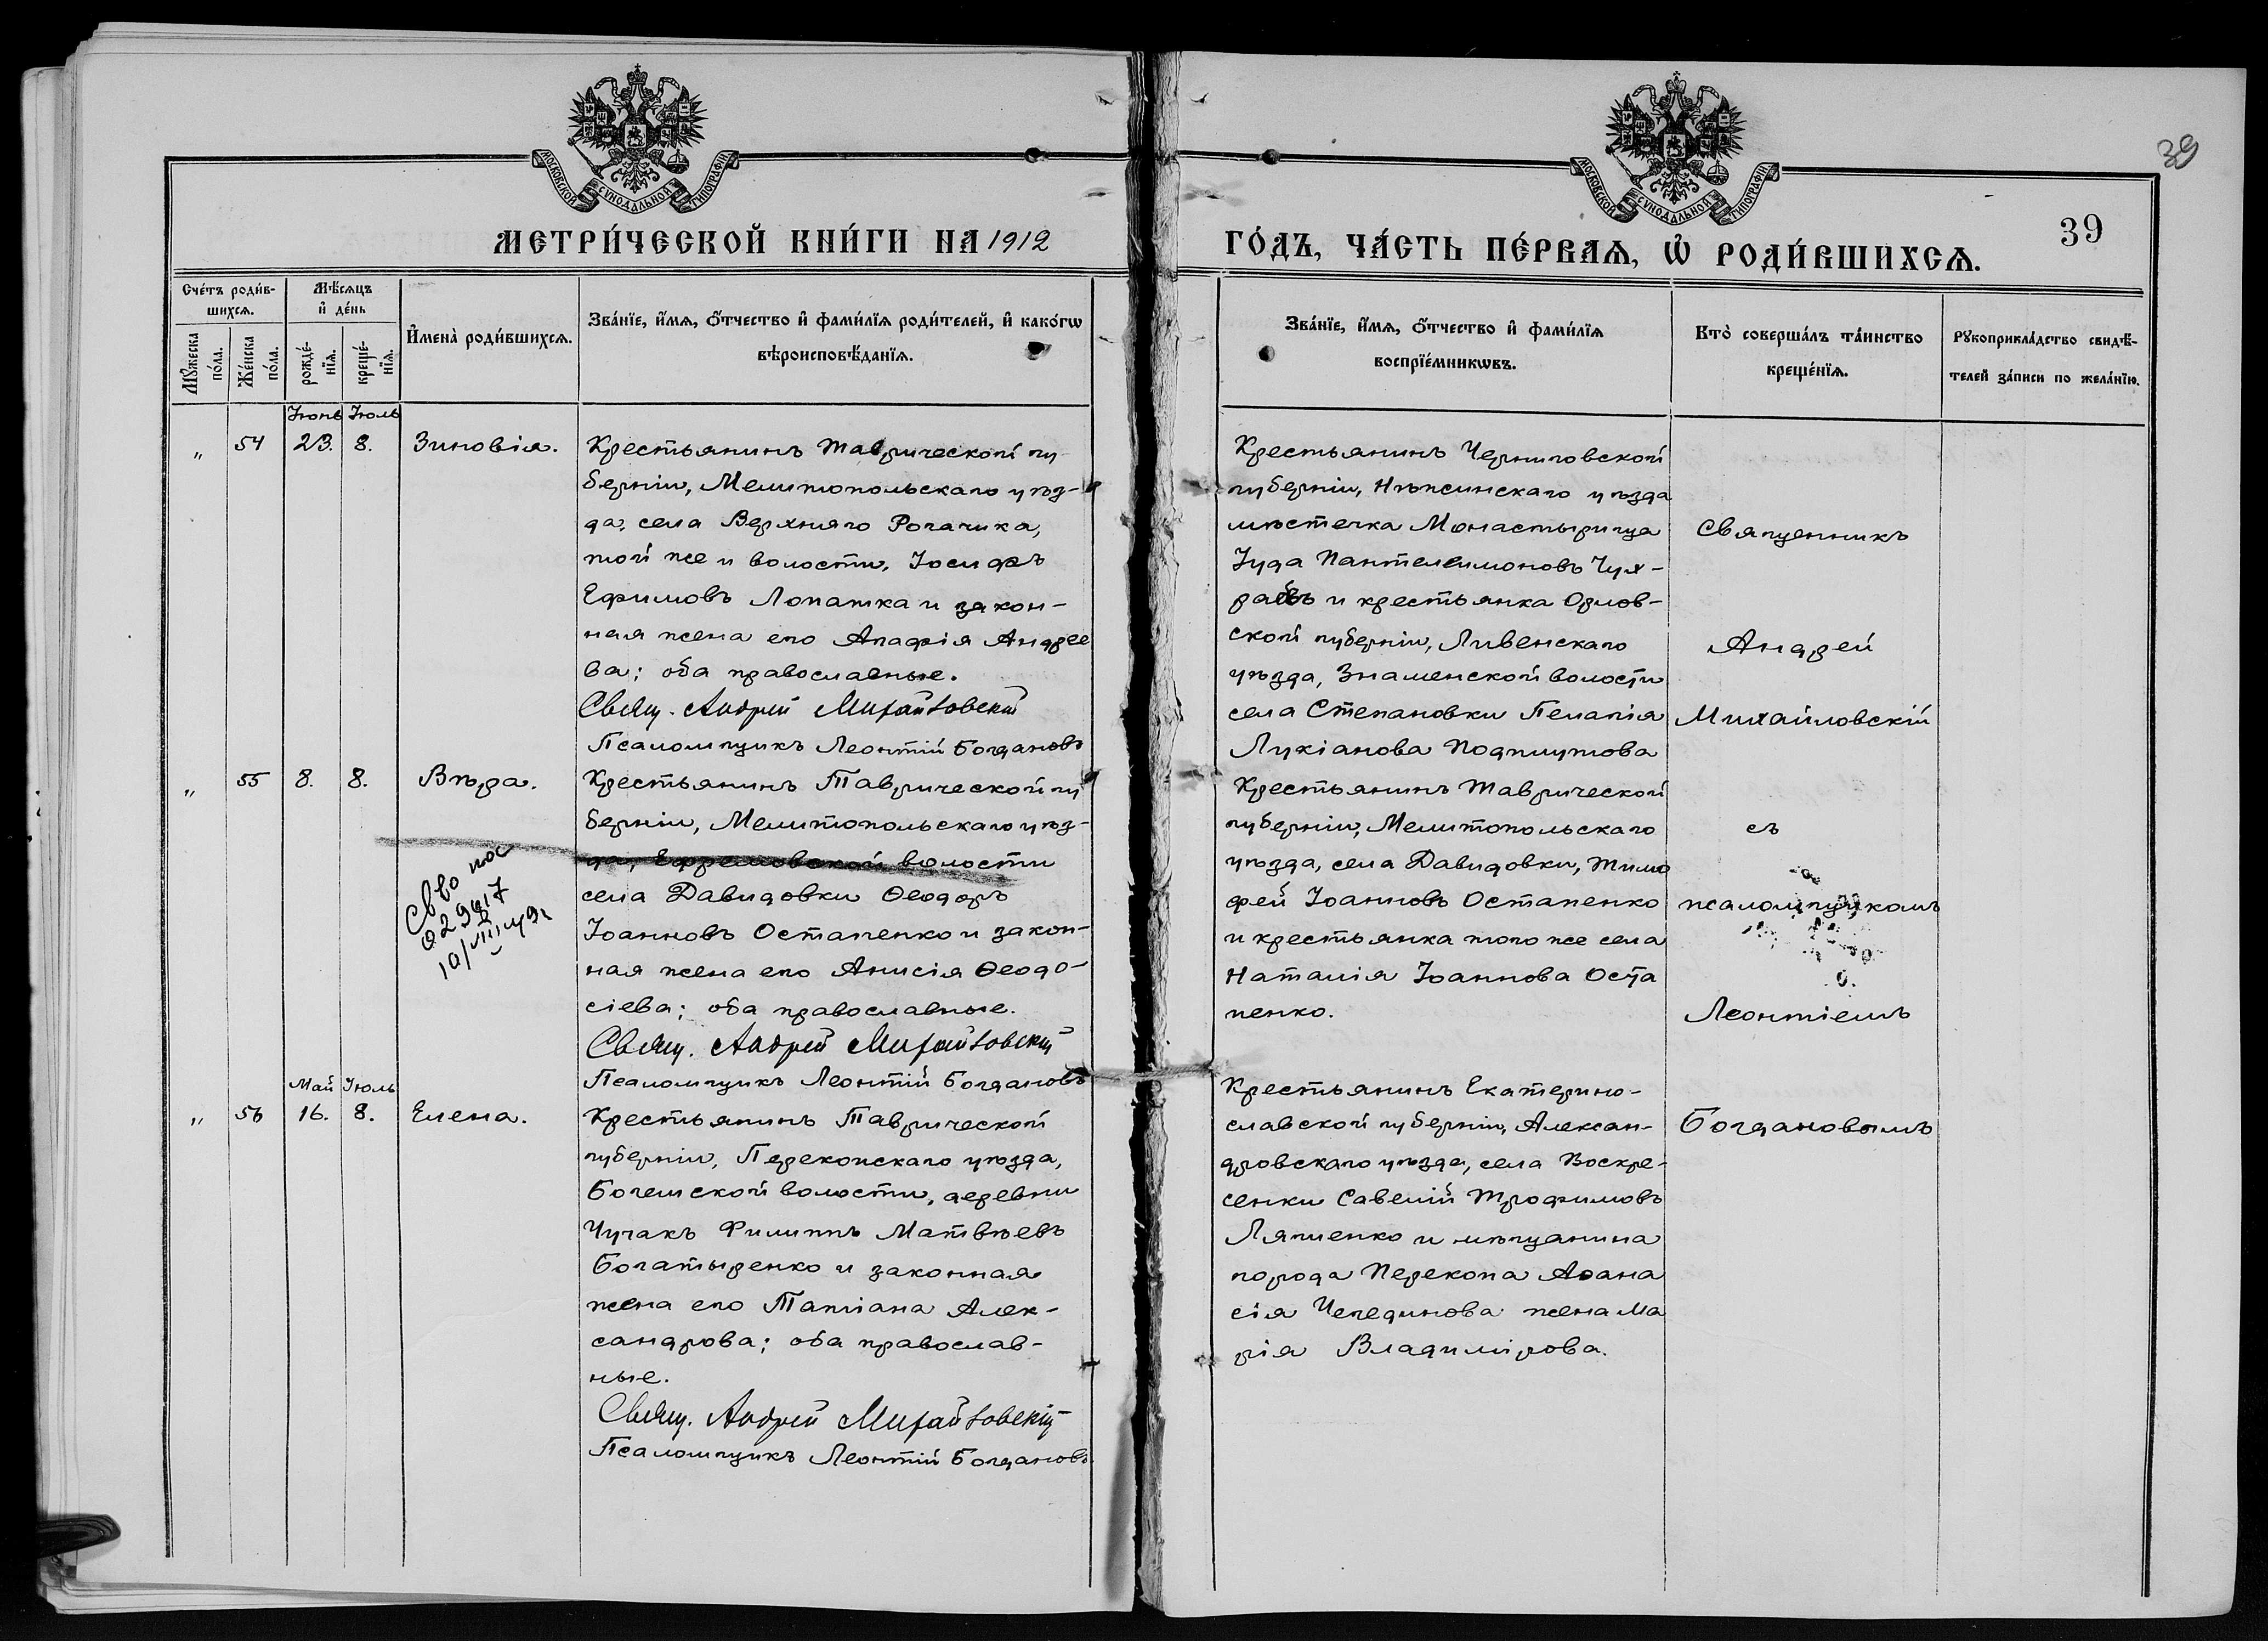 39
МОСКОВСКОЙ СѴНОДАЛЬНОЙ ТИПОГРАФІИ
МОСКОВСКОЙ СѴНОДАЛЬНОЙ ТИПОГРАФІИ
МЕТРИ́ЧЕСКОЙ КНИ́ГИ НА 1912
ГО́ДЪ, ЧА́СТЬ ПЕ́РВАѦ, Ѡ҆ РОДИ́ВШИХСѦ.
39
Сче́тъ роди́в-
шихсѧ.
Мꙋ́жеска по́ла.
Же́нска по́ла.
Мѣ́сѧцъ
и҆ де́нь
рожде́-
нїѧ.
креще́-
нїѧ.
И҆мена̀ роди́вшихсѧ.
Зва́нїе, и҆́мѧ, ѻ҆́тчество и҆ фами́лїѧ роди́телей, и҆ како́гѡ
вѣроисповѣ́данїѧ.
Зва́нїе, и҆́мѧ, ѻ҆́тчество и҆ фами́лїѧ
воспрїе́мникѡвъ.
Кто̀ соверша́лъ та́инство
креще́нїѧ.
Рꙋкоприкла́дство свидѣ́-
телей за́писи по жела́нїю.
Іюнь Іюль
„ 54 23. 8. Зиновія.
Крестьянинъ Таврической гу
берніи, Мелитопольскаго уѣз-
да, села Верхняго Рогачика,
той же и волости, Іосифъ
Ефимовъ Лопатка и закон-
ная жена его Агафія Андрее
ва; оба православные.
Свящ. Андрей Михайловскій
Псаломщикъ Леонтій Богдановъ
Крестьянинъ Черниговской
губерніи, Нѣжинскаго уѣзда
мѣстечка Монастырища
Іуда Пантелеимоновъ Чух-
раевъ и крестьянка Орлов-
ской губерніи, Ливенскаго
уѣзда, Знаменской волости
села Степановки Пелагія
Лукіанова
Священникъ
Андрей
Михайловскій
„ 55 8. 8. Вѣра.
Крестьянинъ Таврической гу
берніи, Мелитопольскаго уѣз-
да, Ефремовской волости
села Давидовки Ѳеодоръ
Іоанновъ Остапенко и закон-
ная жена его Анисія Ѳеодо-
сіева; оба православные.
Свящ. Андрей Михайловскій
Псаломщикъ Леонтій Богдановъ
Крестьянинъ Таврической
губерніи, Мелитопольскаго
уѣзда, села Давидовки, Тимо
фей Іоанновъ Остапенко
и крестьянка того же села
Наталія Іоаннова Оста
пенко.
съ
псаломщикомъ
Леонтіемъ
Богдановымъ
Май Іюль
„ 56 16. 8. Елена.
Крестьянинъ Таврической
губерніи, Перекопскаго уѣзда,
волости, деревни
Чучакъ Филиппъ Матвѣевъ
Богатыренко и законная
жена его Татіана Алек-
сандрова; оба православ-
ные.
Свящ. Андрей Михайловскій
Псаломщикъ Леонтій Богдановъ
Крестьянинъ Екатерино-
славской губерніи, Алексан-
дровскаго уѣзда, села Воскре-
сенки Савелій Трофимовъ
Ляшенко и мѣщанина
города Перекопа Аѳана
сія жена Ма
рія Владимірова.